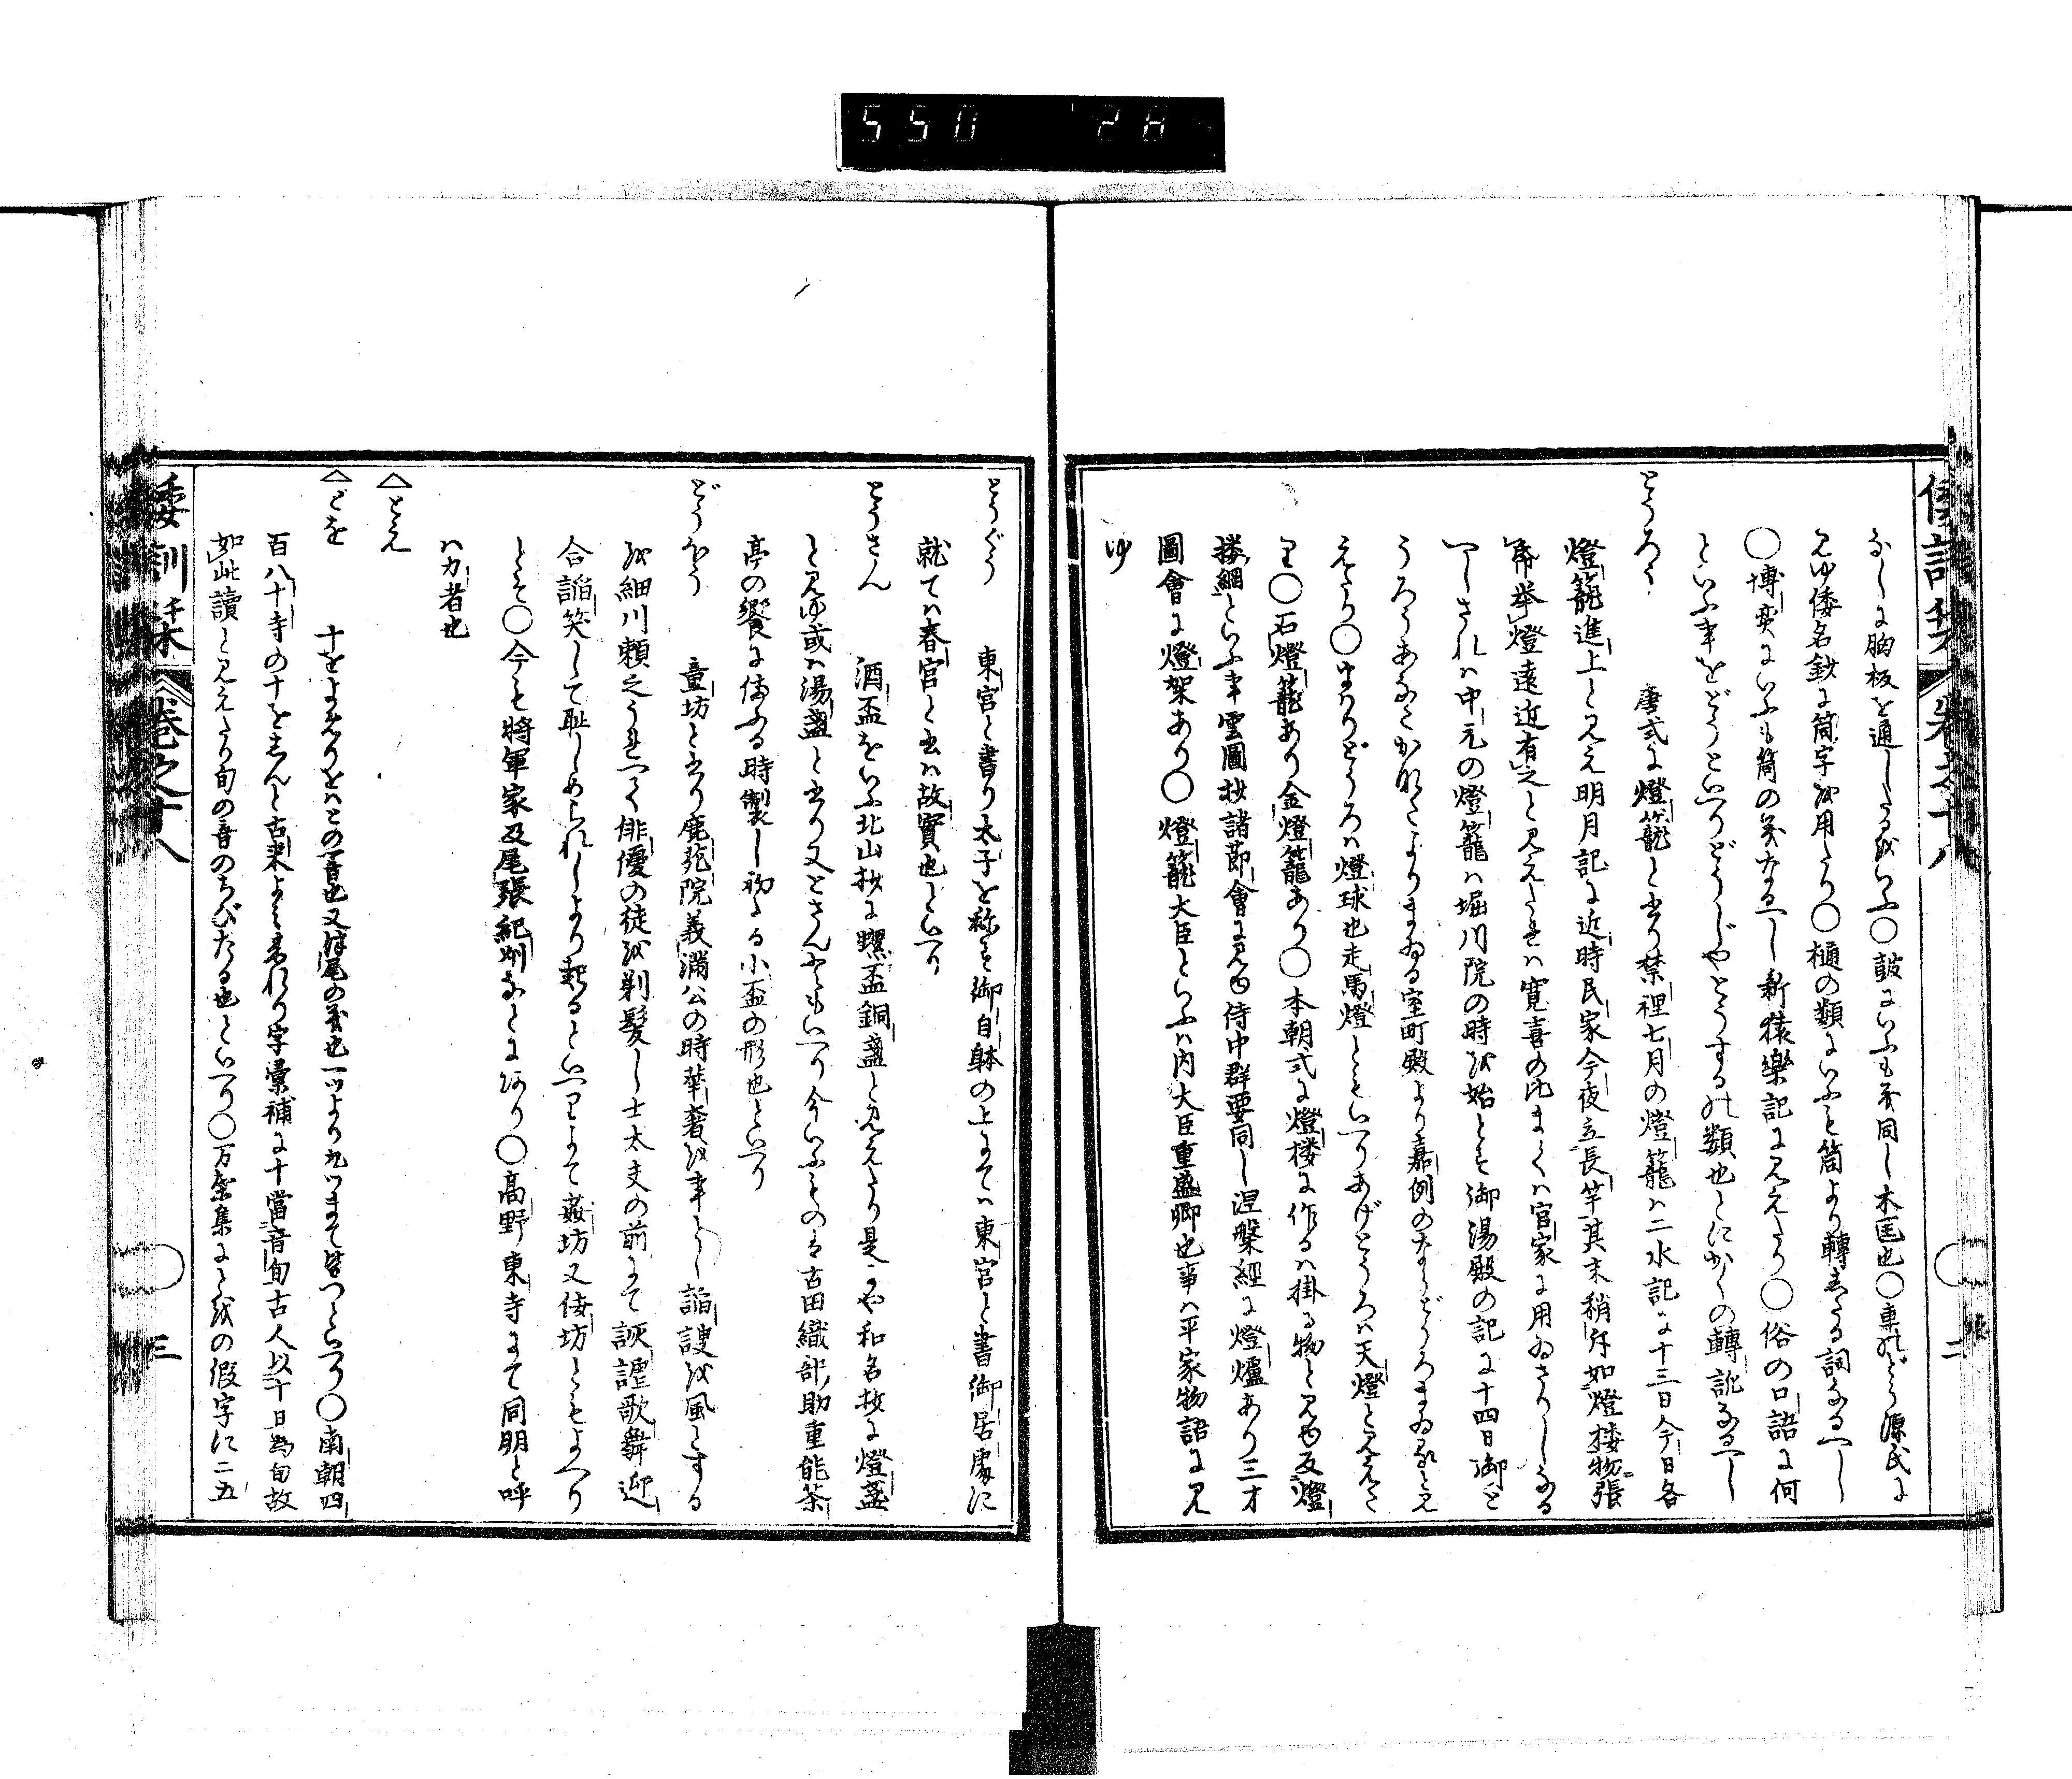 550 28
倭訓栞 巻之十八 二
なしに胸板を通したるをいふ〇皷にいふも義同し木匡也〇車のどう源氏に
見ゆ倭名鈔に筒字を用たり〇樋の類にいふも筒より轉せる詞なるへし
〇博奕にいふも筒の義なるへし新猿樂記に見えたり〇俗の口語に何
といふ事をどうといへりどうじやとうするの類也とにかくの轉訛なるへし
とうろう 唐式に燈籠と書り禁裡七月の燈籠は二水記に十三日今日各
燈籠進上と見え明月記に近時民家今夜立長竿其末稍斤如燈楼物張
帋挙燈遠近有之と見えたれは寛喜の比まては官家に用ゐさりしなる
へしされは中元の燈籠は堀川院の時を始とす御湯殿の記に十四日御と
うろうあなたかなたよりまゐる室町殿より嘉例のなしどうろまゐると見
えたり〇まはりどうろは燈球也走馬燈ともいへりあげとうろは天燈と見えた
り〇石燈籠あり金燈籠あり〇本朝式に燈楼に作るは掛る物と見ゆ又燈
楼綱といふ事雲圖抄諸節會に見ゆ侍中群要同し涅槃經に燈爐あり三才
圖會に燈架あり〇燈籠大臣といふは内大臣重盛卿也事は平家物語に見
ゆ
とうぐう 東宮と書り太子を称す御自躰の上にては東宮と書御居處に
就ては春宮と書は故實也といへり
とうさん 酒盃をいふ北山抄に螺盃銅盞と見えたり是にや和名抄に燈盞
と見ゆ或は湯盞と書り又とさんともいへり今いふものは古田織部助重能茶
亭の饗に侑る時製し初たる小盃の形也といへり
どうぼう 童坊と書り鹿苑院義満公の時華奢を事とし謟諛を風とする
を細川頼之うれへて俳優の徒を剃髪し士太夫の前にて詼謔歌舞迎
合謟笑して耻しめられしより起るといへりよて姦坊又佞坊ともよへり
とそ〇今も將軍家及尾張紀刕なとにあり〇高野東寺にて同朋と呼
は力者也
△とえ
△とを 十をよめりをはこの音也又津尾の義也一ツより九ツまて皆つといへり〇南朝四
百八十寺の十をしんと古来よみ来れり字彙補に十當音旬古人以十日為旬故
如此讀と見えたり旬の音のちびたる也といへり〇万葉集にとをの假字に二五
倭訓栞 巻之十八 三